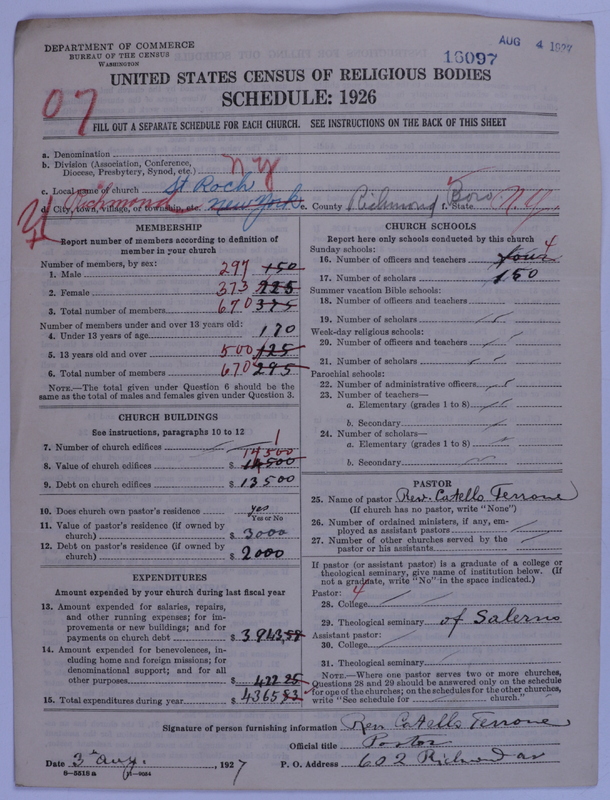 DEPARTMENT OF COMMERCE
BUREAU OF THE CENSUS
WASHINGTON
16097
AUG 4 1927
UNITED STATES CENSUS OF RELIGIOUS BODIES
SCHEDULE: 1926
07
FILL OUT A SEPARATE SCHEDULE FOR EACH CHURCH. SEE INSTRUCTIONS ON THE BACK OF THIS SHEET
a. Denomination
b. Division (Association, Conference,
Diocese, Presbytery, Synod, etc.) NY
c. Local name of church St Roch
d. City, town, village, or township, etc. Richmond New York e. County Richmond Boro f. State N.Y.
MEMBERSHIP
Report number of members according to definition of
member in your church
Number of members, by sex:
1. Male 297 150
2. Female 373 225
3. Total number of members 670 375
Number of members under and over 13 years old:
4. Under 13 years of age 170
5. 13 years old and over 500 125
6. Total number of members 670 295
NOTE.—The total given under Question 6 should be
same as the total of males and females given under Question 3.
CHURCH BUILDINGS
See instructions, paragraphs 10 to 12
7. Number of church edifices 1
8. Value of church edifices $ 14500 14500
9. Debt on church edifices $ 13500
10. Does church own pastor's residence yes
Yes or No
11. Value of pastor's residence (if owned by
church) $ 3000
12. Debt on pastor's residence (if owned by
church) $ 2000
EXPENDITURES
Amount expended by your church during last fiscal year
13. Amount expended for salaries, repairs,
and other running expenses; for im-
provements or new buildings; and for
payments on church debt $ 3943,58
14. Amount expended for benevolences, in-
cluding home and foreign missions; for
denominational support; and for all
other purposes $ 422 25
15. Total expenditures during year $ 4365 83
CHURCH SCHOOLS
Report here only schools conducted by this church
Sunday schools:
16. Number of officers and teachers four 4
17. Number of scholars 150
Summer vacation Bible schools:
18. Number of officers and teachers
19. Number of scholars
Week-day religious schools:
20. Number of officers and teachers
21. Number of scholars
Parochial schools:
22. Number of administrative officers
23. Number of teachers—
a. Elementary (grades 1 to 8)
b. Secondary
24. Number of scholars—
a. Elementary (grades 1 to 8)
b. Secondary
PASTOR
25. Name of pastor Rev. Catello Terrone
(If church has no pastor, write "None")
26. Number of ordained ministers, if any, em-
ployed as assistant pastors
27. Number of other churches served by the
pastor or his assistants
If pastor (or assistant pastor) is a graduate of a college or
theological seminary, give name of institution below. (If
not a graduate, write "No" in the space indicated.)
Pastor: 4
28. College
29. Theological seminary of Salerno
Assistant pastor:
30. College
31. Theological seminary
NOTE.—Where one pastor serves two or more churches,
Questions 28 and 29 should be answered only on the schedule
for one of the churches; on the schedules for the other churches,
write "See schedule for church."
Signature of person furnishing information Rev Catello Terrone
Official title Pastor
Date 3 Aug. , 1927 P. O. Address 602 Richmond av
8—5515 a 11—9054